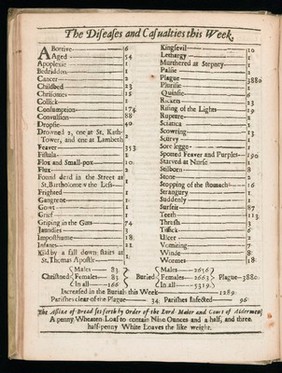 The Diseases and Casualties this Week.
Abortive 6
Aged 54
Apoplexie 1
Bedridden 1
Cancer 2
Childbed 23
Chrisomes 15
Collick 1
Consumption 174
Convulsion 88
Dropsie 40
Drowned 2, one at St. Kath-
Tower, and one at Lambeth 2
Feaver 353
Fistula 1
Flox and Small-pox 10
Flux 2
Found dead in the Street at
St. Bartholomew the Less 1
Frighted 1
Gangrene 1
Gowt 1
Grief 1
Griping in the Guts 74
Jaundies 3
Imposthume 18
Infants 21
Kild by a fall down stairs at
St. Thomas Apostle 1
Kingsevil 10
Lethargy 1
Murthered at Stepney 1
Palsie 2
Plague 3880
Plurisie 1
Quinsie 6
Rickets 23
Rising of the Lights 19
Rupture 2
Sciatica 1
Scowring 13
Scurvy 1
Sore legge 1
Spotted Feaver and Purples 190
Starved at Nurse 1
Stilborn 8
Stone 2
Stopping of the stomach 16
Strangury 1
Suddenly 1
Surfeit 87
Teeth 113
Thrush 3
Tissick 6
Ulcer 2
Vomiting 7
Winde 8
Wormes 18
Christned Males 83 Females 83 In all 166
Buried Males 2656 Females 2663 In all 5319
Plague 3880
Increased in the Burials this Week 1289
Parishes clear of the Plague 34 Parishes Infected 96
The Assize of Bread set forth by Order of the Lord Maior and Court of Aldermen,
A penny Wheaten Loaf to contain Nine Ounces and a half, and three
half-penny White Loaves the like weight.